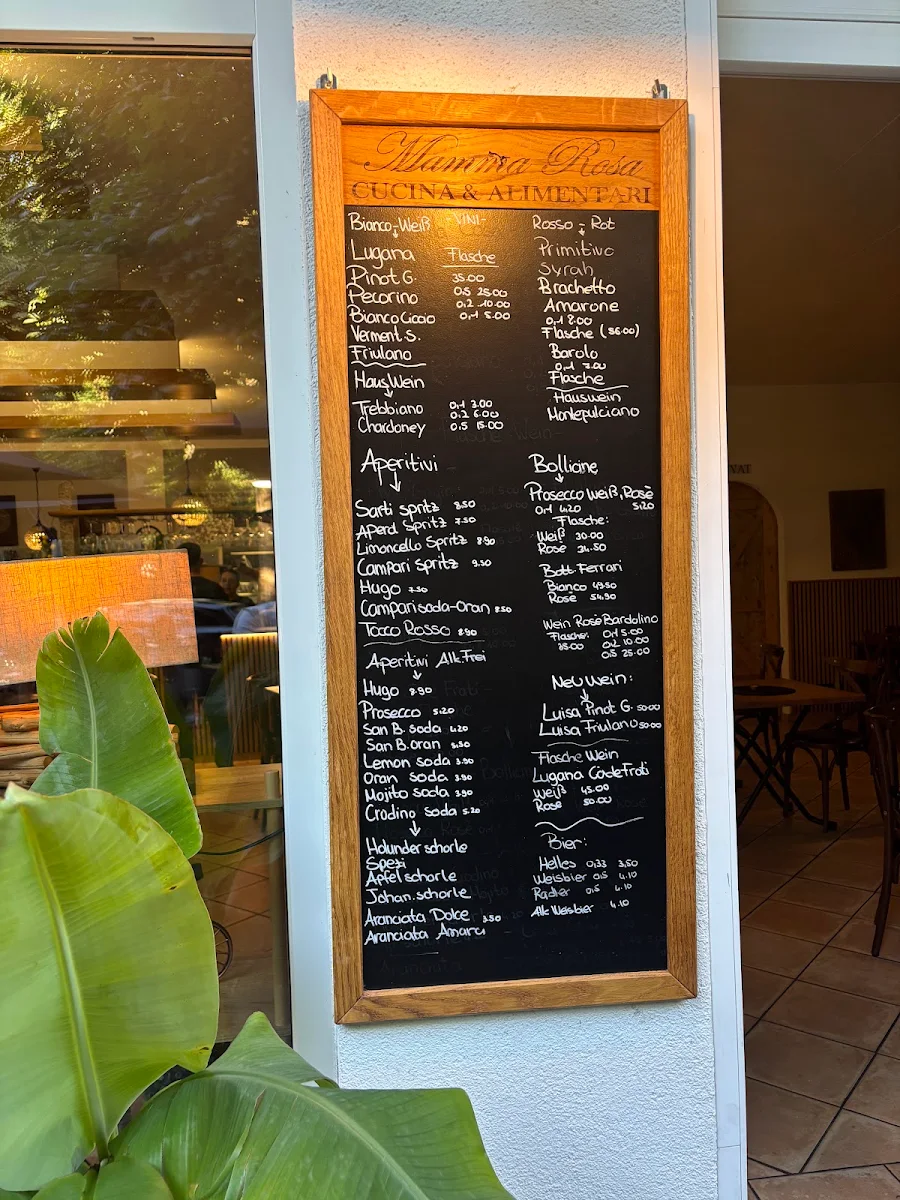 Mamma Rosa
CUCINA & ALIMENTARI
Bianco-Weiß -VINI-
Lugana Flasche
Pinot G. 35.00
Pecorino 0,5 25.00
Bianco Ciccio 0,2 10.00
Verment.S. 0,1 5.00
Friulano
HausWein
Trebbiano 0,1 3.00
Chardoney 0.2 6.00
0.5 15.00
Aperitivi
Sarti Spritz 8.50
Aperol Spritz 7.50
Limoncello Spritz 8.90
Campari Spritz 9.50
Hugo 7.50
Campari soda-Oran 8.50
Tocco Rosso 8.90
Aperitivi Alk.Frei
Hugo 8.90
Prosecco 5.20
San B. Soda 4.20
San B. Oran 4.50
Lemon soda 3.90
Oran Soda 3.90
Mojito Soda 3.90
Crodino Soda 5.20
Holunderschorle
Spezi
Apfelschorle
Johan.schorle
Aranciata Dolce 3.50
Aranciata Amara
Rosso - Rot
Primitivo
Syrah
Brachetto
Amarone
0,1 8.00
Flasche (56.00)
Barolo
0,1 7.00
Flasche
Hauswein
Montepulciano
Bollicine
Prosecco Weiß, Rosè
0,1 4.20 5.20
Flasche:
Weiß 30.00
Rose 34.50
Bott.Ferrari
Bianco 49.50
Rose 54.90
Wein Rose Bardolino
Flasche: 0,1 5.00
35.00 0,2 10.00
0,5 25.00
Neu Wein:
Luisa Pinot G. 50.00
Luisa Friulano 50.00
Flasche Wein
Lugana CádeFrati
Weiß 45.00
Rose 50.00
Bier:
Helles 0,33 3.50
Weisbier 0.5 4.10
Radler 0.5 4.10
Alk Weisbier 4.10